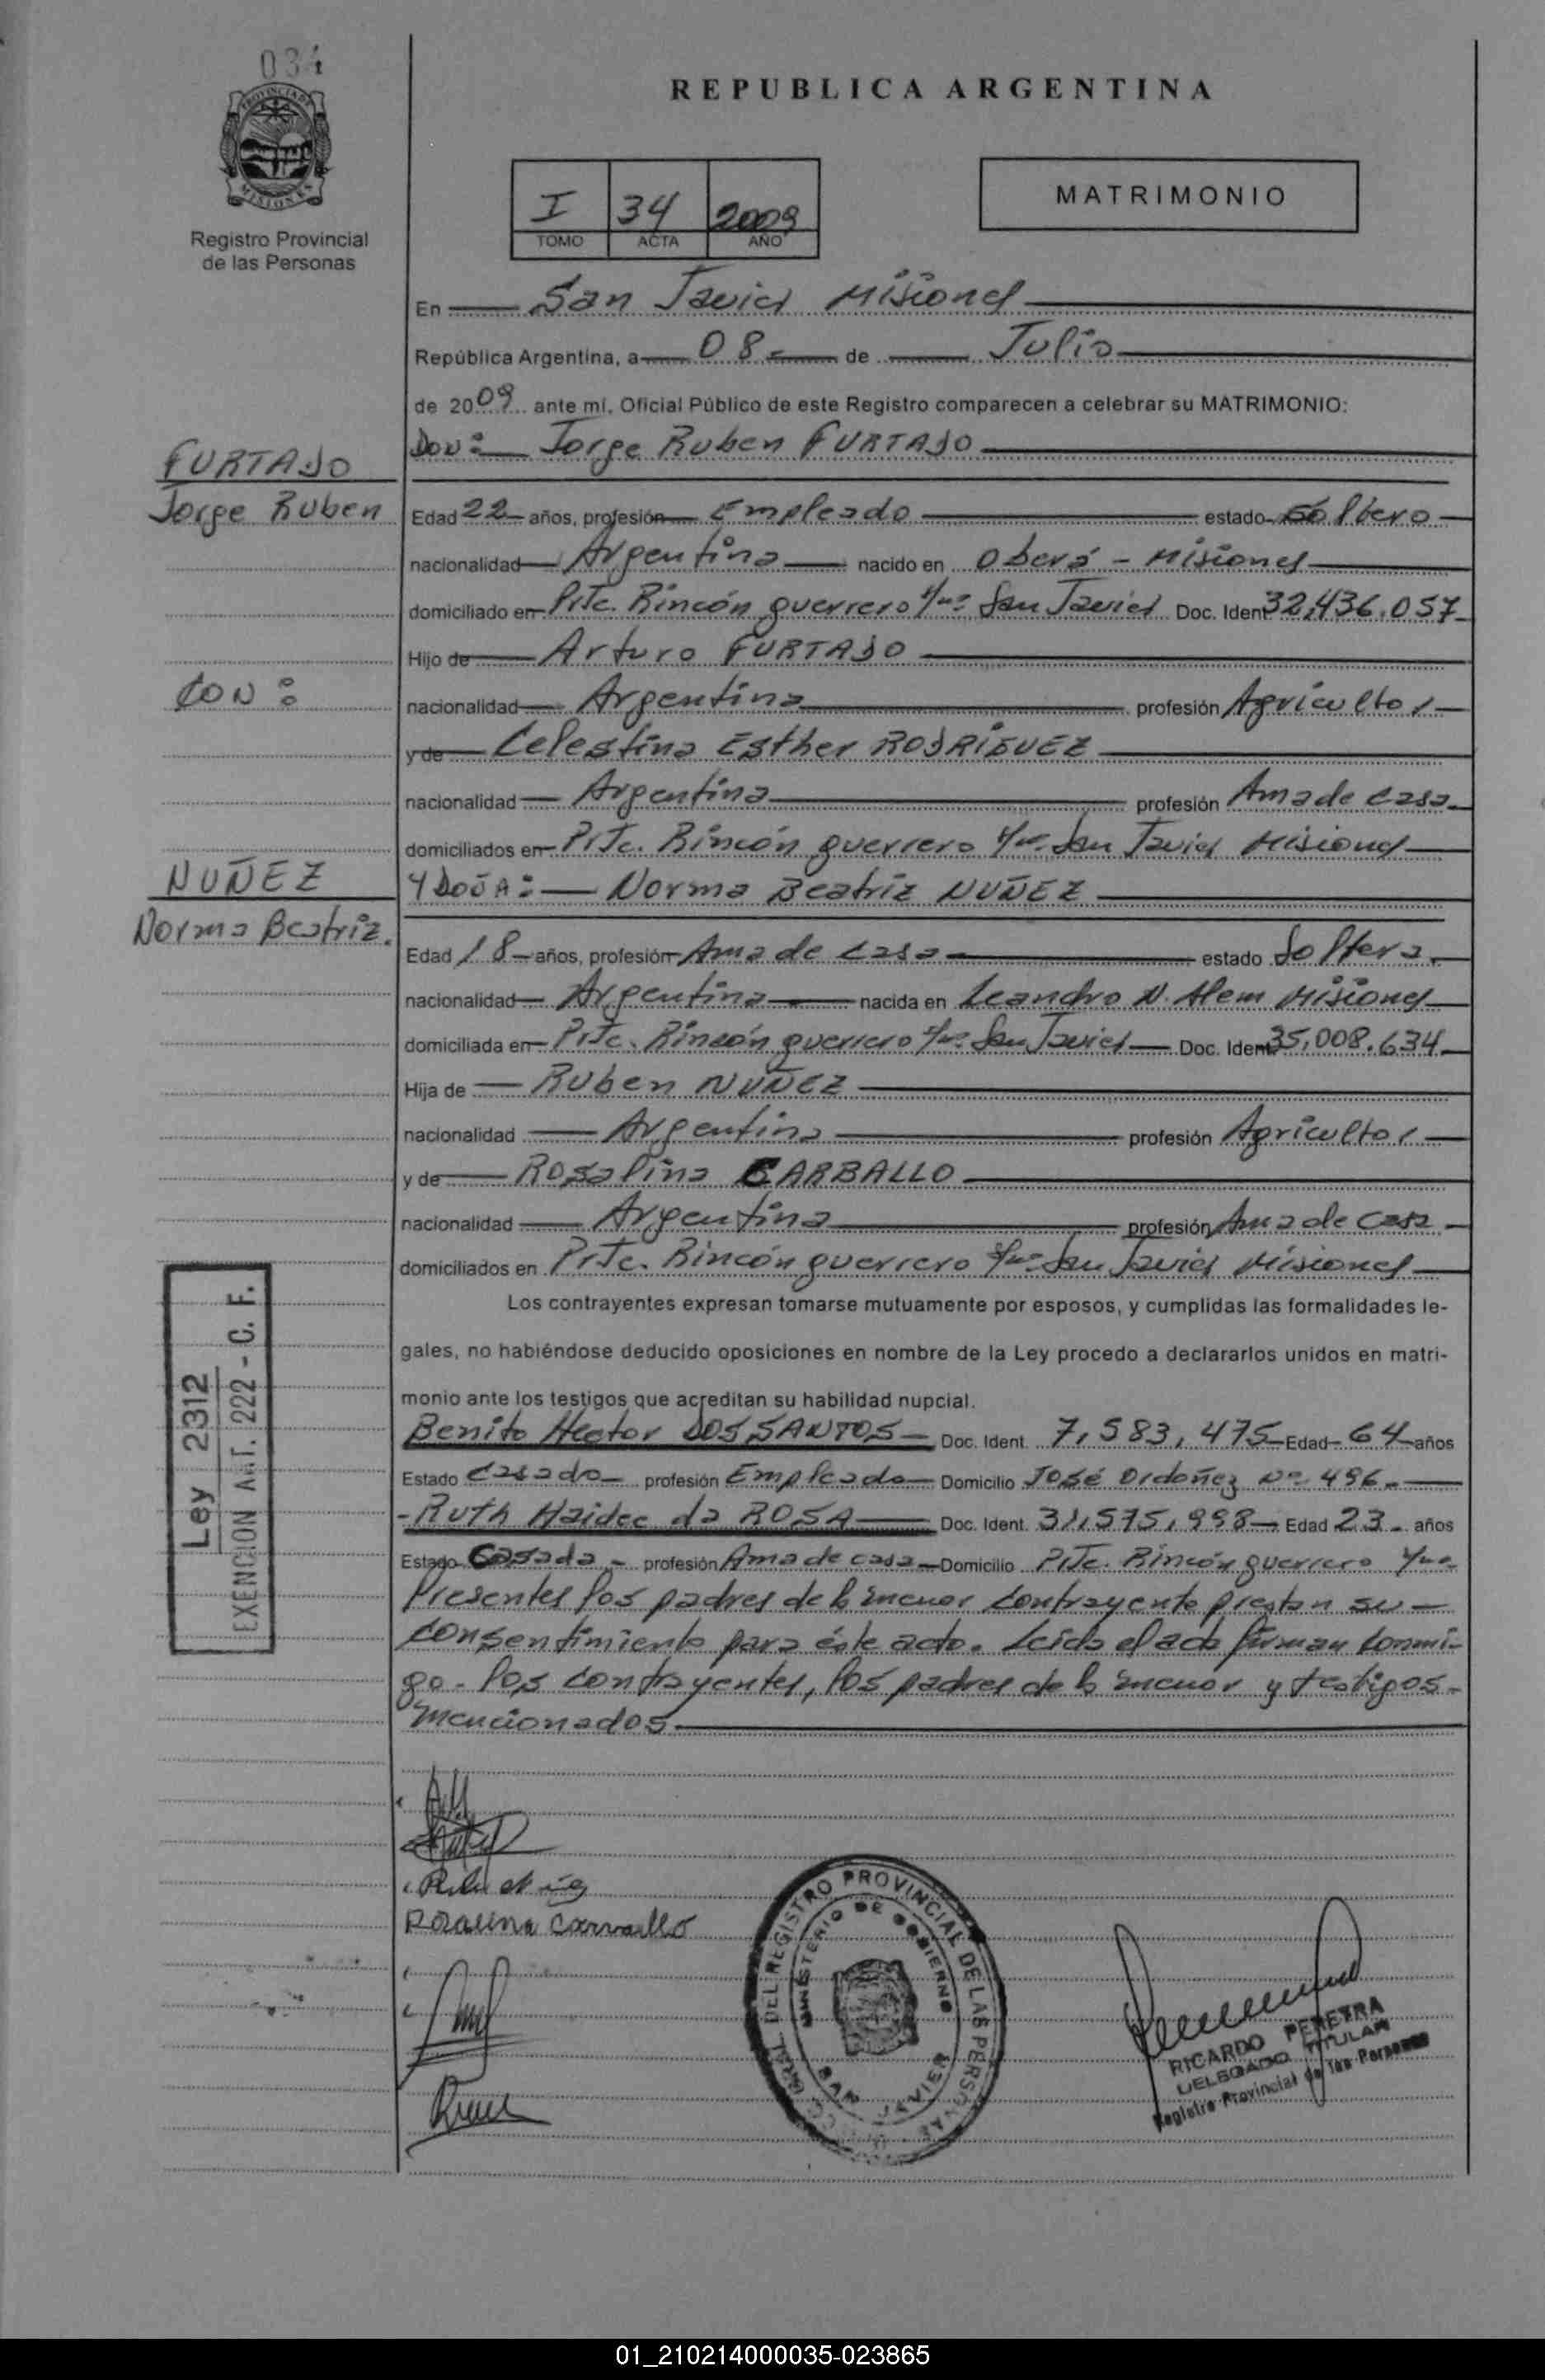 034
PROVINCIA DE
MISIONES
Registro Provincial
de las Personas
REPUBLICA ARGENTINA
I 34 2009
TOMO ACTA AÑO
MATRIMONIO
En San Javier Misiones
República Argentina, a 08 de Julio
de 2009 ante mí, Oficial Público de este Registro comparecen a celebrar su MATRIMONIO:
DON: Jorge Ruben FURTADO
FURTADO
Jorge Ruben
Edad 22 años, profesión Empleado estado Soltero
nacionalidad Argentina nacido en Oberá - Misiones
domiciliado en Pje. Rincón guerrero San Javier Doc. Ident 32,436.057
Hijo de Arturo FURTADO
CON:
nacionalidad Argentina profesión Agricultor
y de Celestina Esther RODRIGUEZ
nacionalidad Argentina profesión Ama de casa
domiciliados en Pje. Rincón guerrero San Javier Misiones
NUÑEZ
Norma Beatriz.
Y DOÑA: Norma Beatriz NUÑEZ
Edad 18 años, profesión Ama de casa estado Soltera.
nacionalidad Argentina nacida en Leandro N. Alem Misiones
domiciliada en Pje. Rincón guerrero San Javier Doc. Ident 35.008.634
Hija de Ruben NUÑEZ
nacionalidad Argentina profesión Agricultor
y de Rosalina CARBALLO
nacionalidad Argentina profesión Ama de casa
domiciliados en Pje. Rincón guerrero San Javier Misiones
Los contrayentes expresan tomarse mutuamente por esposos, y cumplidas las formalidades le-
gales, no habiéndose deducido oposiciones en nombre de la Ley procedo a declararlos unidos en matri-
monio ante los testigos que acreditan su habilidad nupcial.
Ley 2312
EXENCION ART. 222 - C. F.
Benito Hector DOS SANTOS Doc. Ident. 7,583,475 Edad 64 años
Estado Casado profesión Empleado Domicilio José Ordoñez Nº 496
Ruth Haidee da ROSA Doc. Ident. 31,575,998 Edad 23 años
Estado Casada profesión Ama de casa Domicilio Pje. Rincón guerrero
Presentes los padres de la menor contrayente prestan su
consentimiento para éste acto. Leida el acta firman conmi-
go. los contrayentes, los padres de la menor y testigos
mencionados
Rosalina Carvallo
DEL REGISTRO PROVINCIAL DE LAS PERSONAS
MINISTERIO DE GOBIERNO
SAN JAVIER
RICARDO PEREYRA
DELEGADO TITULAR
Registro Provincial de las Personas
01_210214000035-023865